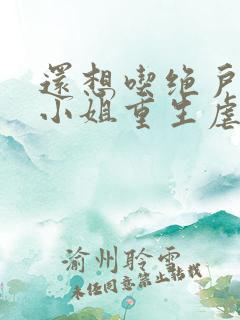 還想喫绝戶
小姐重生虐
渝州聆雲
未经同意禁止转载